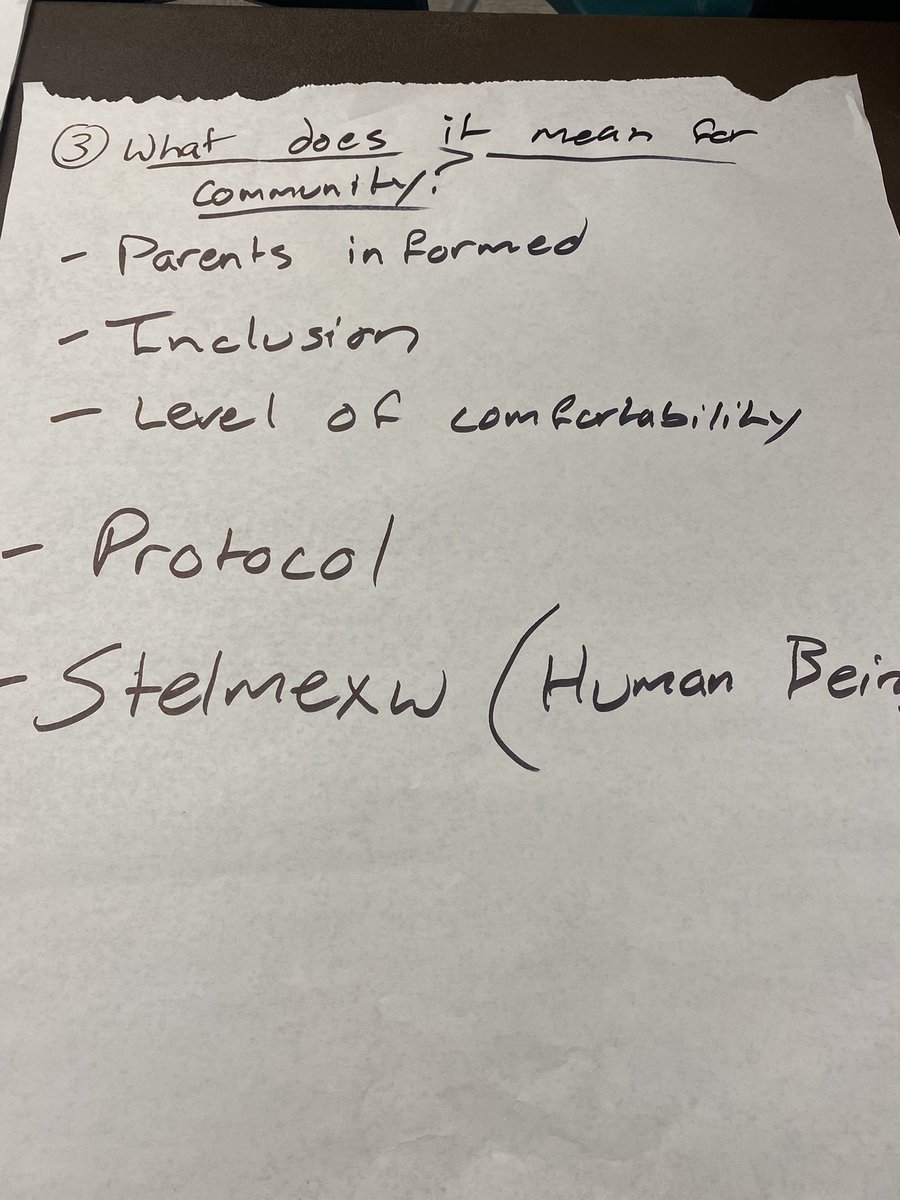 ③ What does it mean for
community?
- Parents informed
- Inclusion
- Level of comfortability
- Protocol
- Stelmexw (Human Bein